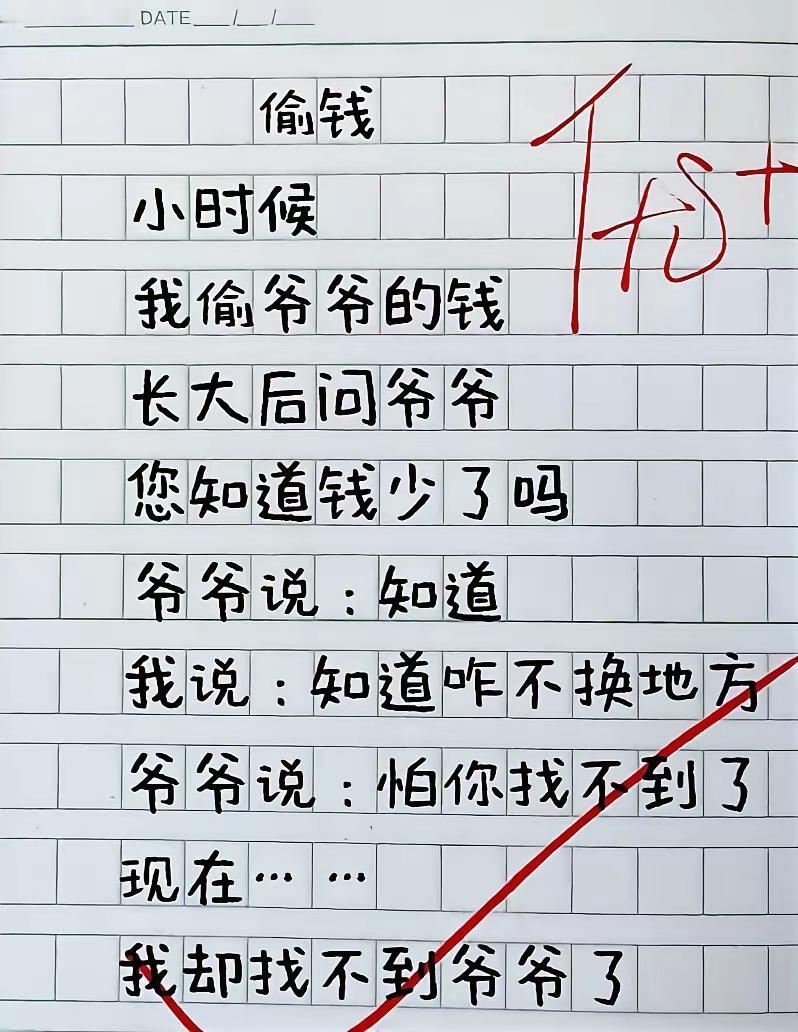 DATE___/___/___
偷钱
小时候
我偷爷爷的钱
长大后问爷爷
您知道钱少了吗
爷爷说：知道
我说：知道咋不换地方
爷爷说：怕你找不到了
现在……
我却找不到爷爷了